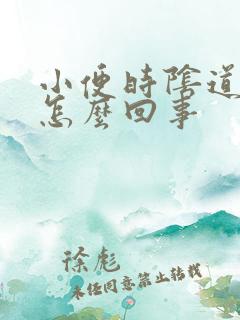 小便時陰道
怎麼回事
徐彪
未经同意禁止转载